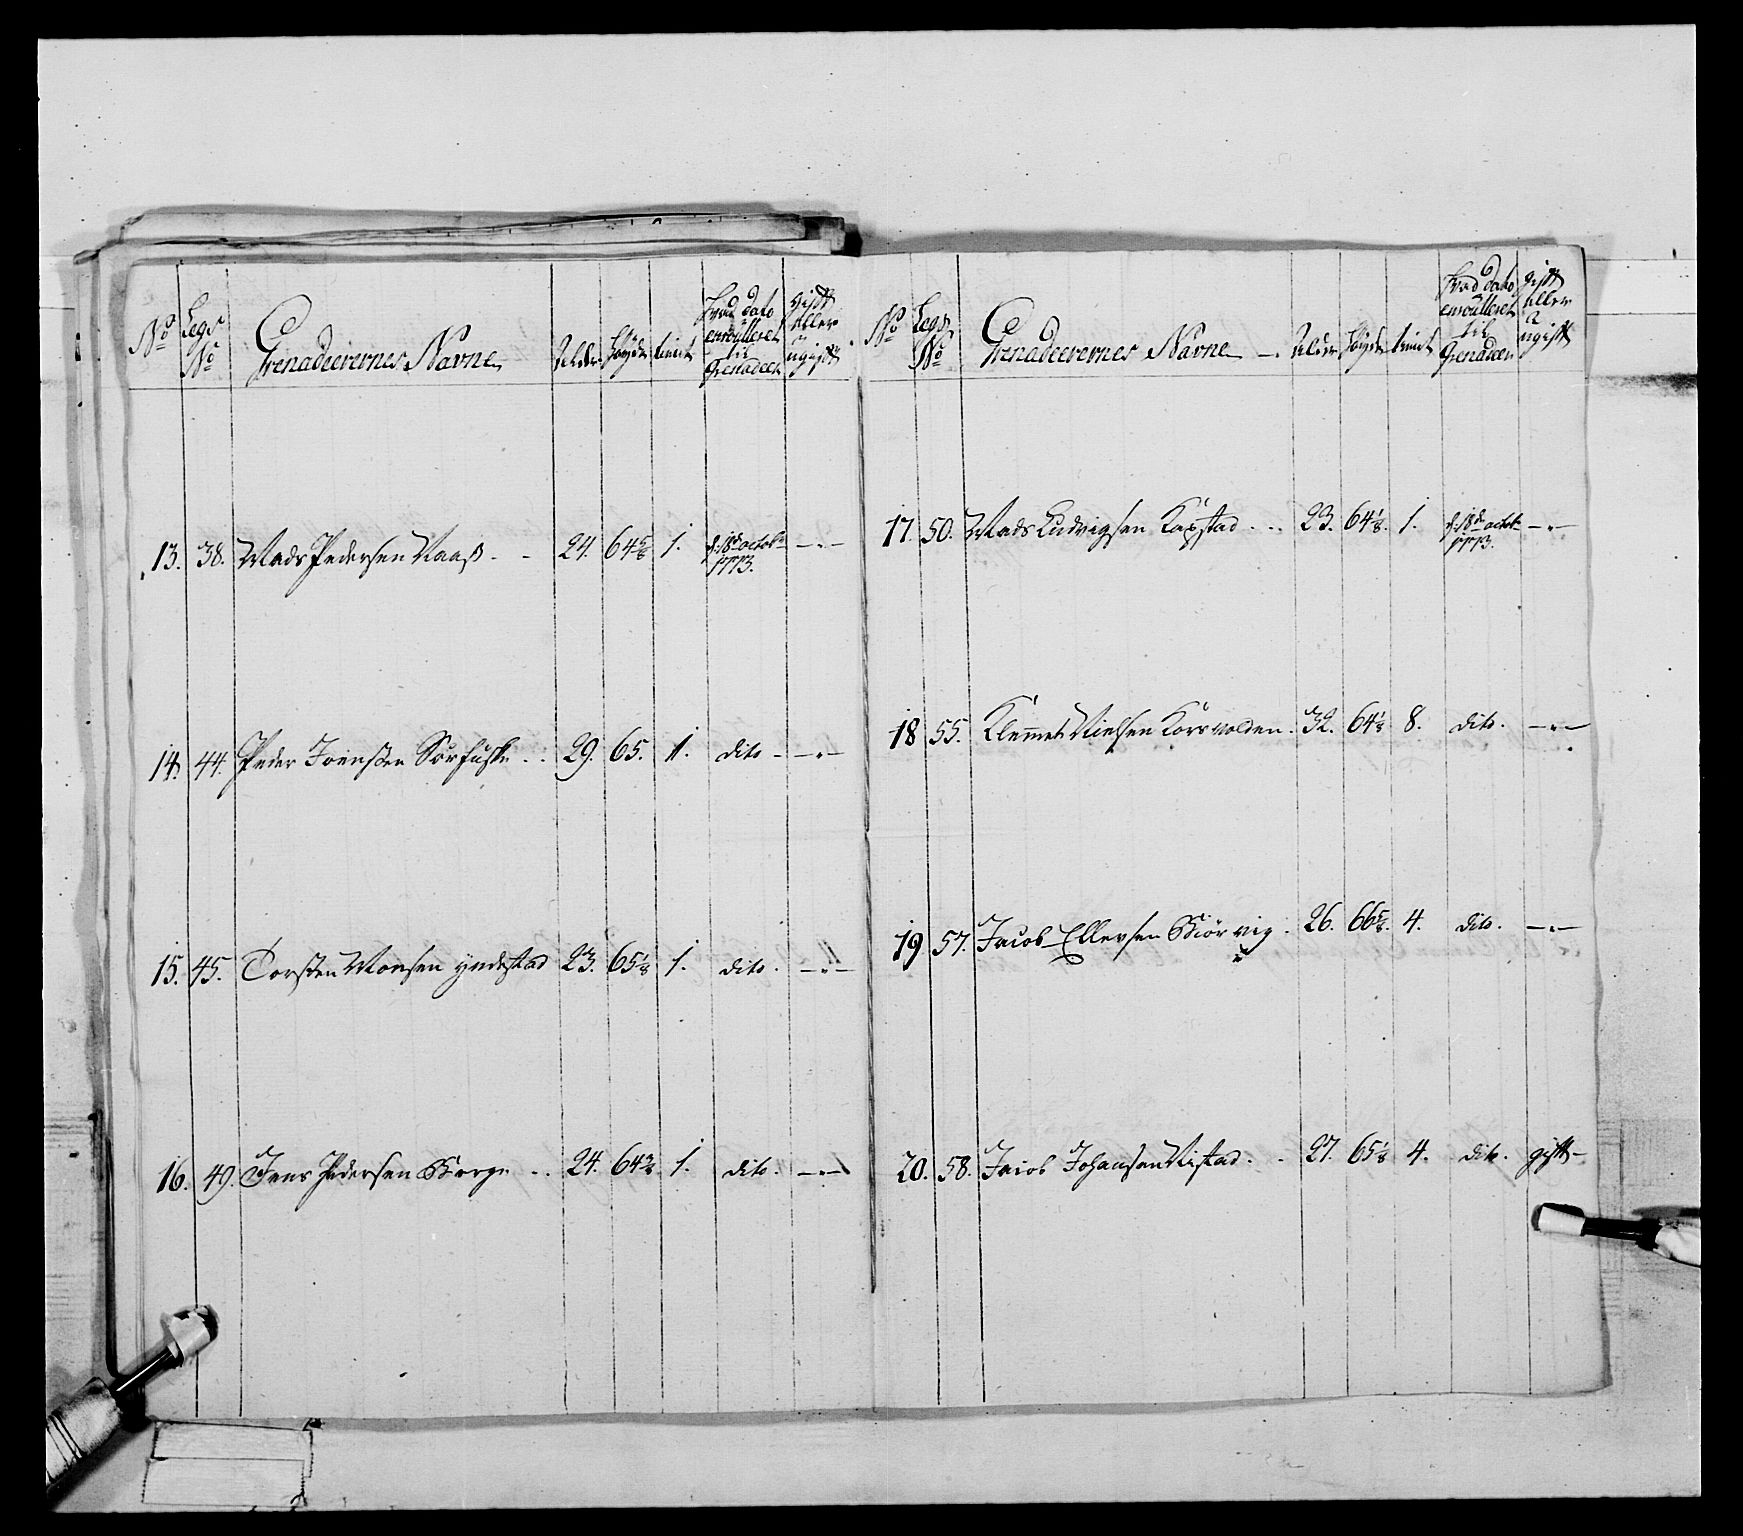 No
Legs No
Grenadeerernes Navne
Alder
Høyde
tient
hvad dato enroulleret til Grenadeer
gift eller ugift
13. 38. Mads Pedersen Naaß - - 24. 64 5/8 1. d: 18de octobr 1773. -"-
14. 44. Peder Joensen Sørhuske . . 29. 65. 11. dito - -"-
15. 45. Torsten Monsen Yndestad 23. 65 1/8 1. dito. -"-
16. 49. Jens Pedersen Berge - - 24. 64 3/8 1. dito. -"-
No
Legs No
Grenadeerernes Navne -
Alder
høyde
tient
hvad dato enroulleret til Grenadeer
gift eller ugift
17. 50. Mads Ludvigsen Kapstad - - - 23. 64 1/8. 1. d: 18de octobr 1773. -"-
18 55. Klemmet Nielsen Korsvolden. 32. 64 1/8 8. dito. -"-
19 57. Jacob Ellevsen Biørvig. 26. 66 5/8. 4. dito. -"-
20. 58. Jacob Johansen Vistad. - 27. 65 1/8 4. dito. gift -